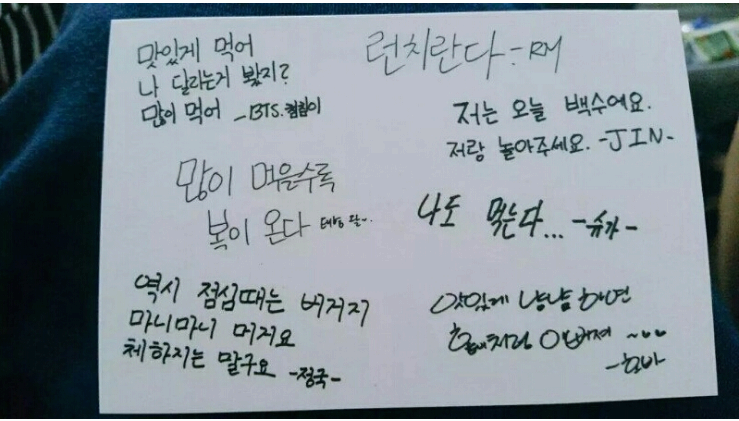 맛있게 먹어
나 달라는거 봤지?
많이 먹어 -BTS.침침이
런치란다-RM
저는 오늘 백수에요.
저랑 놀아주세요.-JIN-
많이 먹을수록
복이 온다
나도 먹는다... -슈가-
역시 점심때는 버거지
마니마니 머거요
체하지는 말구요 -정국-
맛있게 냠냠하면
예뻐져 ~